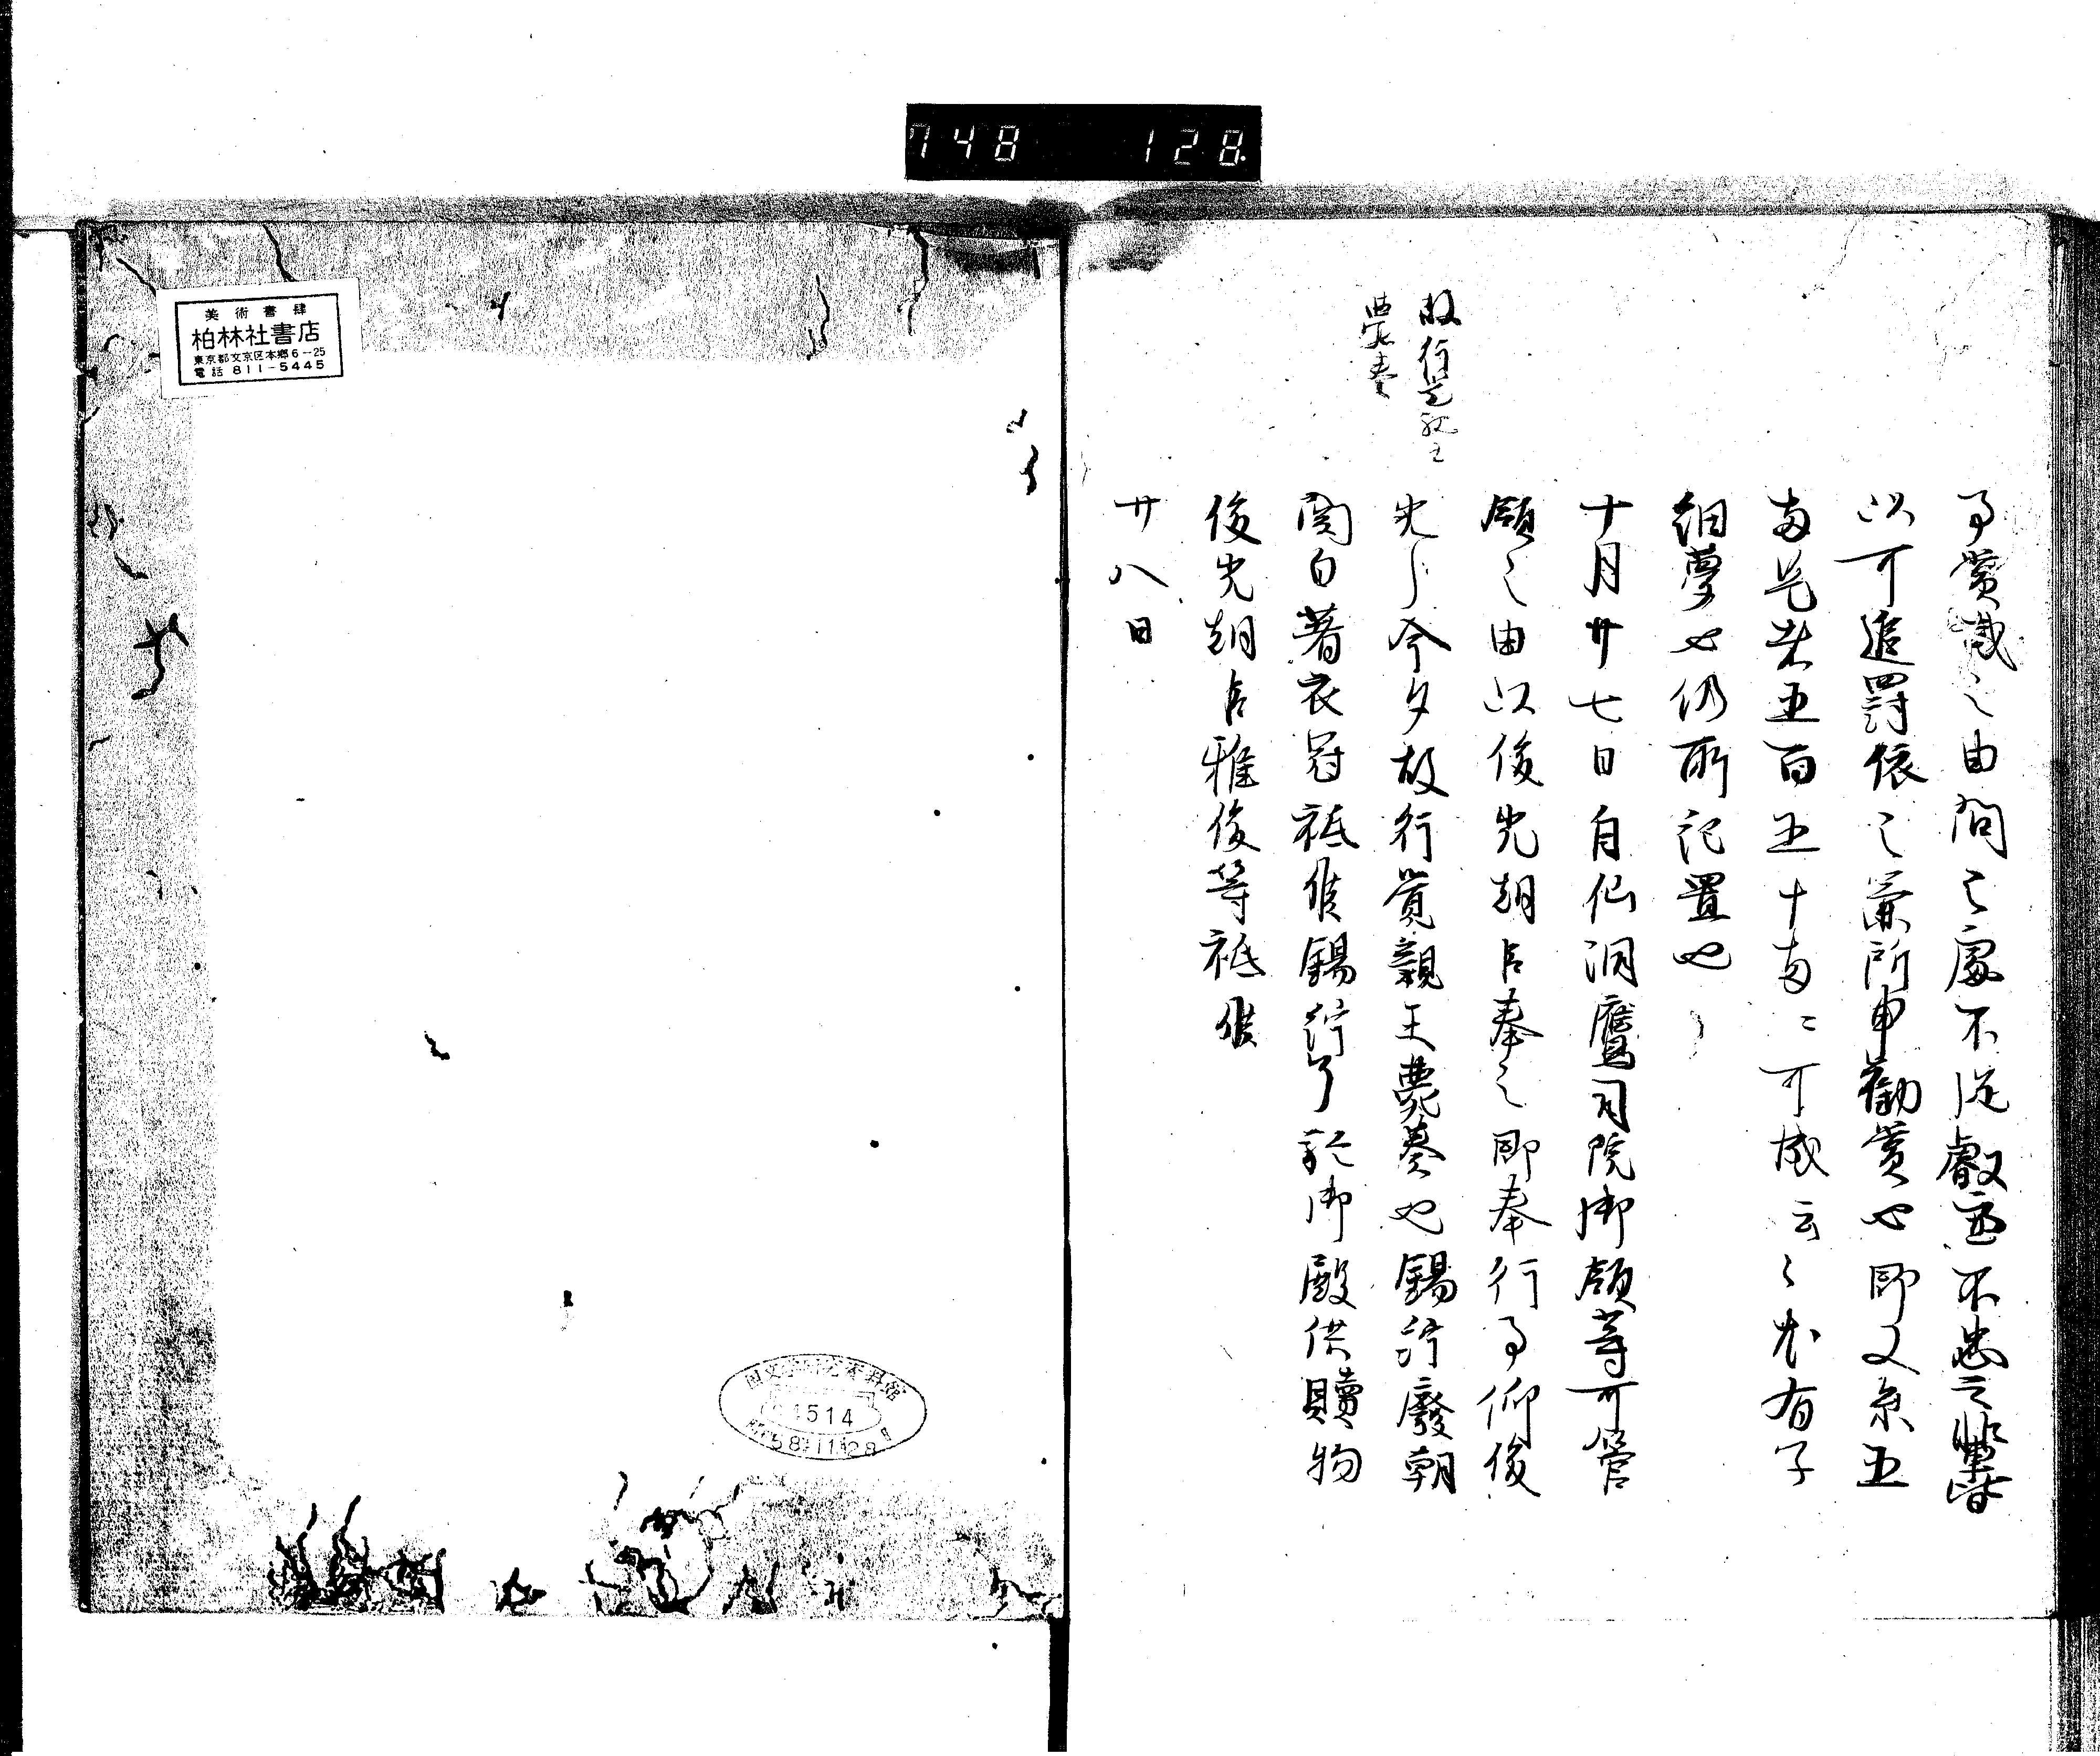 748 128
故行覚親王
薨奏
事賞減之由問之處不従叡慮不忠之
以可追罰依之兼所申勧賞也即又魚五
両是者五百五十両ニ可成云々尤有子
細夢也仍所記置也
十月廿七日自仙洞鷹司院御領等可管
領之由以俊光朝臣奉之即奉行事仰俊
光了今夕故行覚親王薨奏也錫紵廢朝
関白著衣冠祗候錫紵了於御殿供贖物
俊光朝臣雅俊等祗候
廿八日
美術書肆
柏林社書店
東京都文京区本郷6-25
電話 811-5445
国文学研究資料館
1514